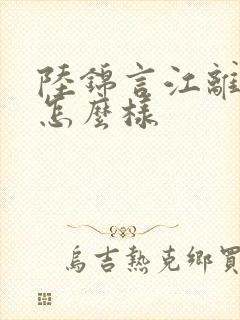 陸錦言江離
怎麼樣
烏吉熱克鄉買